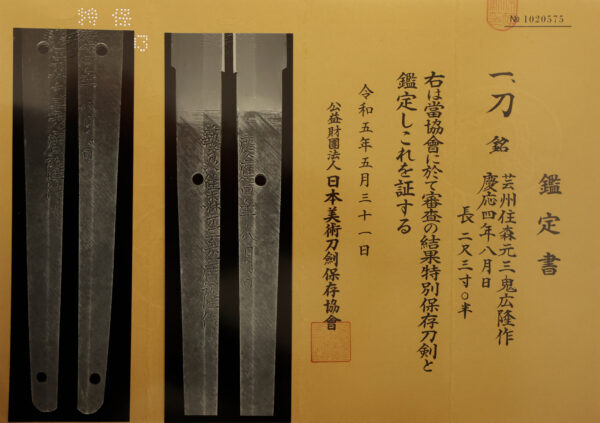 № 1020575
鑑定書
一、刀 銘 芸州住森元三鬼広隆作
慶応四年八月日
長 二尺三寸〇半
右は當協會に於て審査の結果特別保存刀剣と
鑑定しこれを証する
令和五年五月三十一日
公益財團法人 日本美術刀剣保存協會
特保